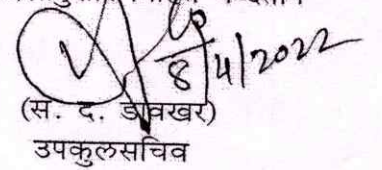 8/4/2022
(स. द. डावखर)
उपकुलसचिव